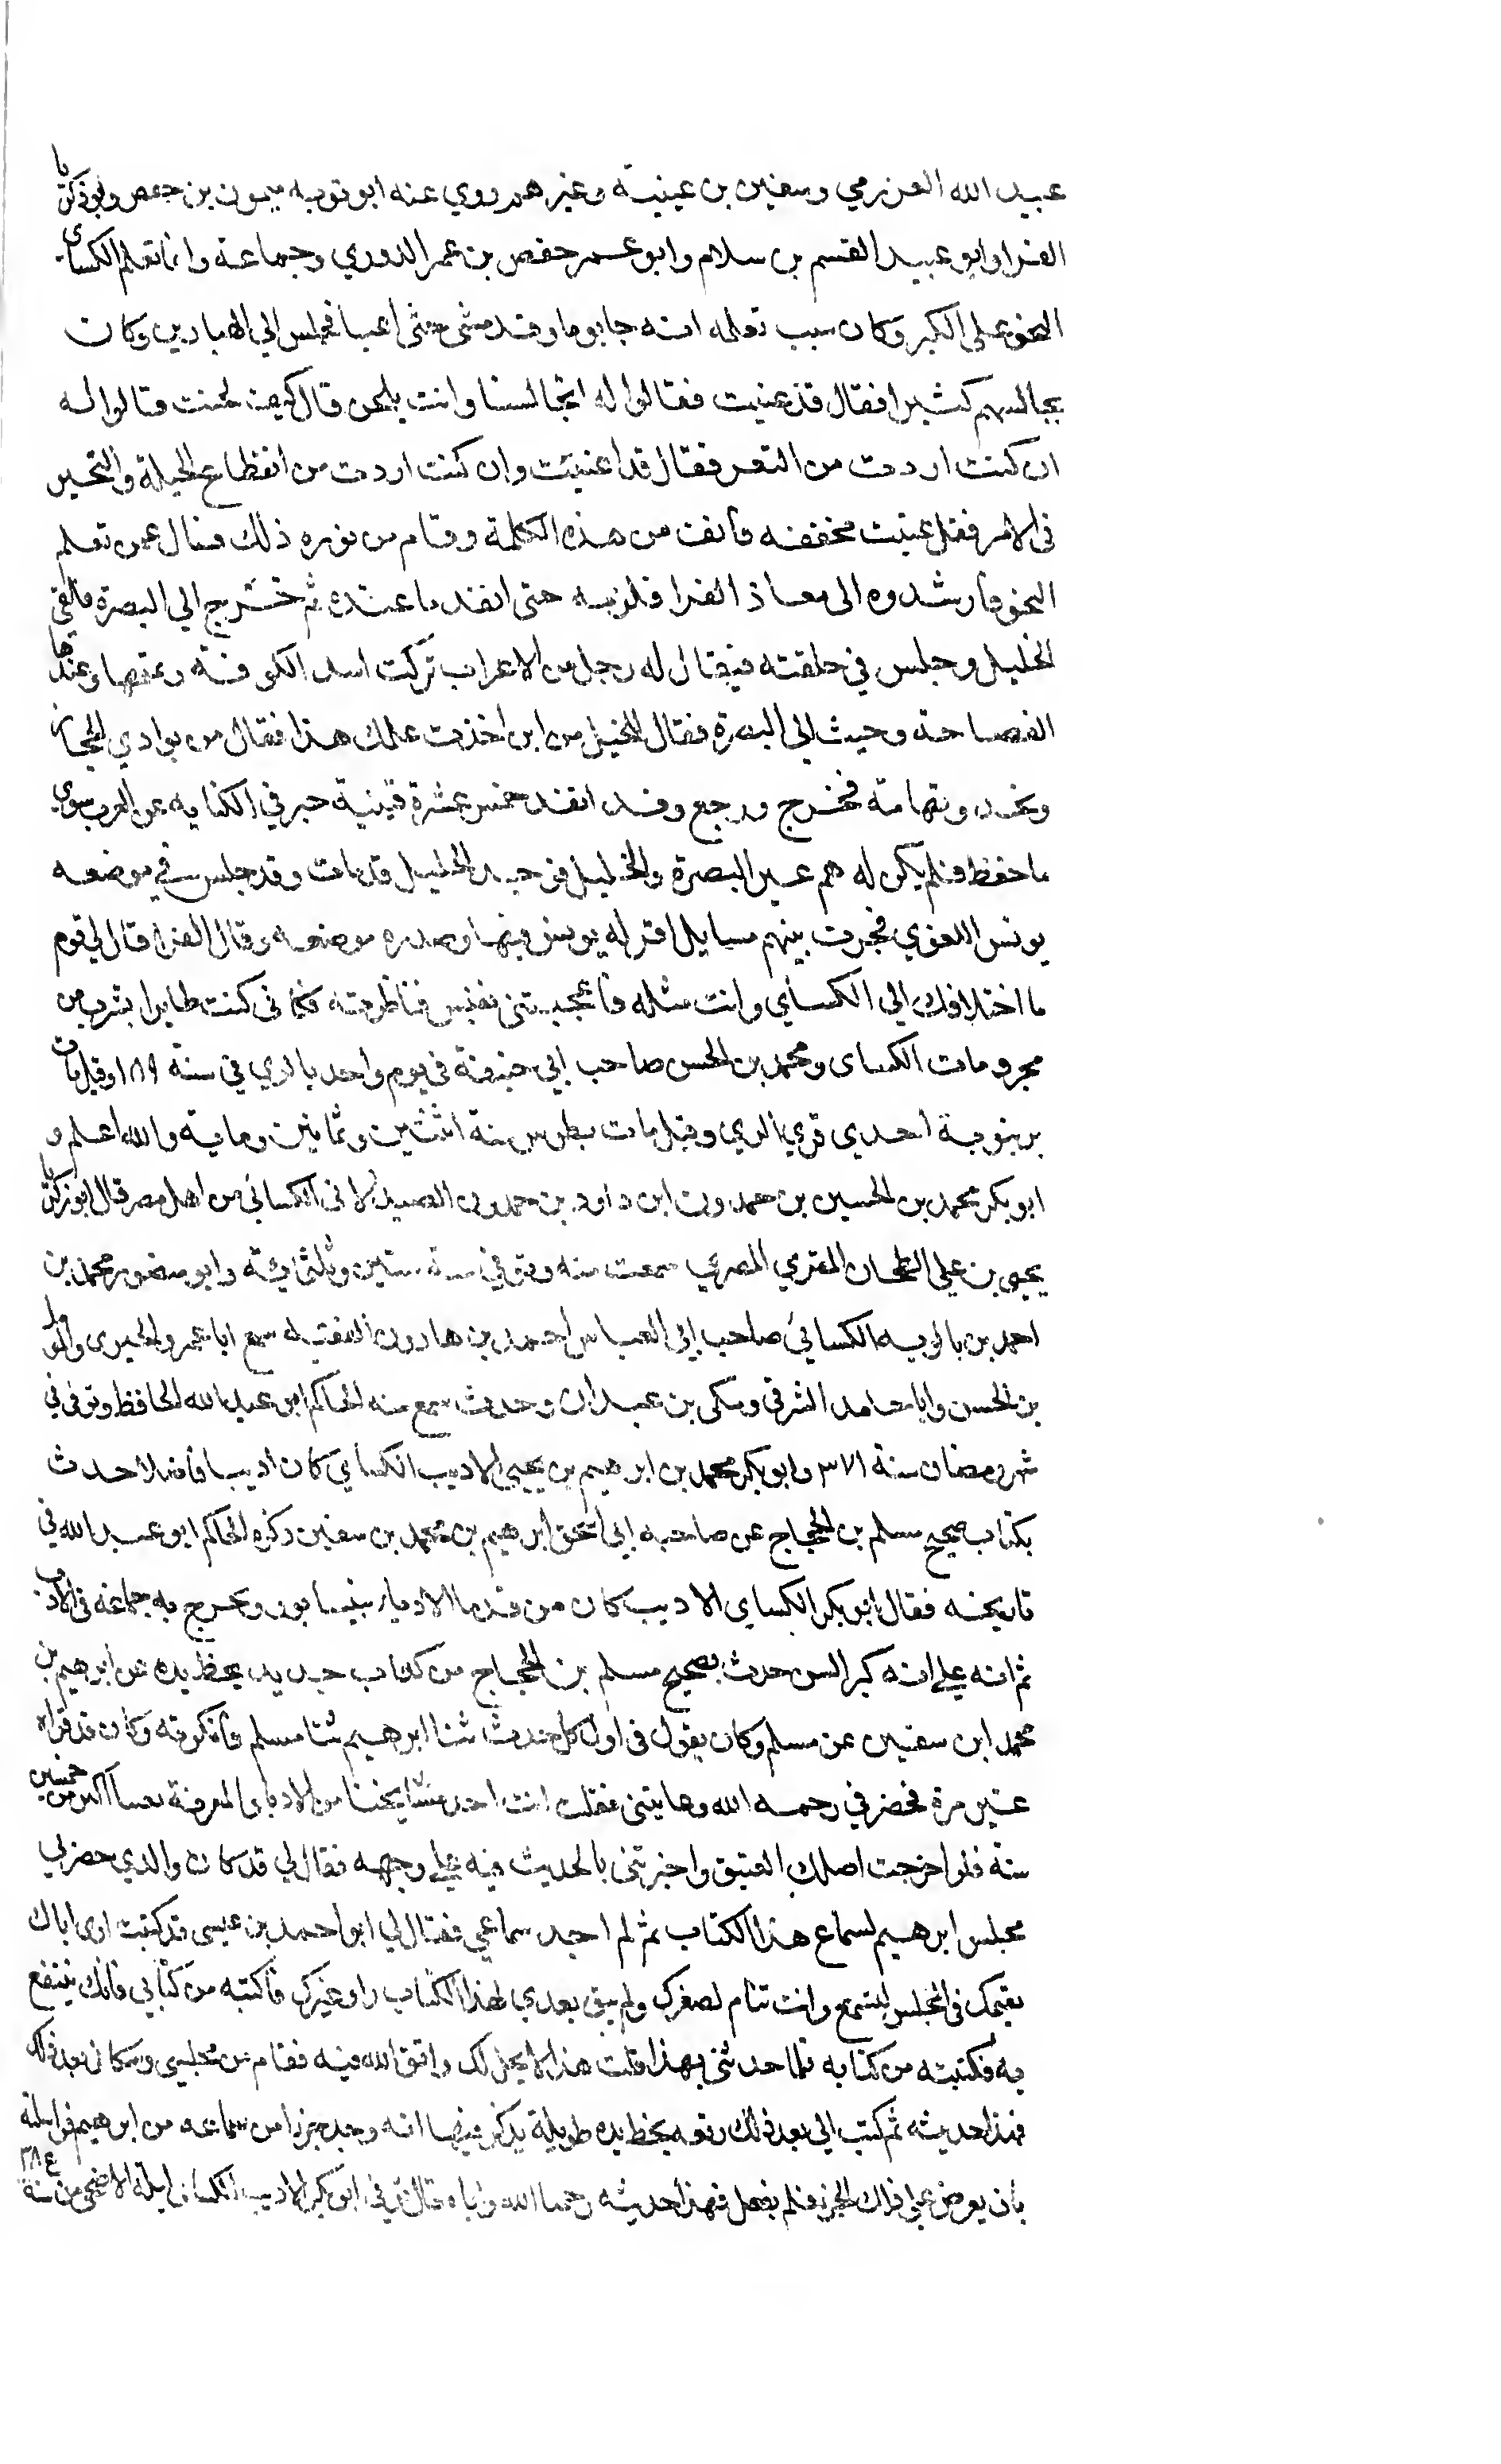 عبيد الله العزرمي وسفين بن عيينة وغيرهم روي عنه ابو توبه ميمون بن حفص وابو زكريا
الفرا وابو عبيد القسم بن سلام وابو عمر حفص بن عمر الدوري وجماعة وانما تعلم الكساي
النحو على الكبر وكان سبب تعلمه انه جا يوما وقد مشى حتى اعيا فجلس الى الهبارين وكان
يجالسهم كثيرا فقال قد عييت فقالوا له اتجالسنا وانت تلحن قال كيف لحنت قالوا له
ان كنت اردت من التعب فقال قد اعييت وان كنت اردت من انقطاع الحيلة والتحير
في الامر فقل عييت مخففه فانف من هذه الكلمة وقام من فوره ذلك فسال عمن تعلم
النحو فارشدوه الى معاذ الفرا فلزمه حتى انفد ما عنده ثم خرج الي البصرة فلقي
الخليل وجلس في حلقته فيقال له رجل من الاعراب تركت اسد الكوفة وتميمها وعندها
الفصاحة وجيت الى البصرة فقال للخليل من اين اخذت علمك هذا فقال من بوادي الحجاز
ونجد وتهامة فخرج ورجع وقد انفد خمس عشرة قنينة حبر في الكتابه عن العرب سوي
ما حفظ فلم يكن له هم غير البصرة والخليل فوجد الخليل قد مات وقد جلس في موضعه
يونس النحوي فجرت بينهم مسايل اقر له يونس فيها وصدره موضعه وقال الفرا قال لي قوم
ما اختلافك الي الكساي وانت مثله فاعجبتني نفسي فناظرته فكاني كنت طايرا يشرب من
بحر ومات الكساى ومحمد بن الحسن صاحب ابي حنيفة في يوم واحد بالري في سنة ١٨٩ وقيل مات
برنبوية احدي قري الري وقيل مات بطوس سنة اثنتين وثمانين وماية والله اعلم و
ابو بكر محمد بن الحسين بن حمدون ابن داود بن حمدون الصيدلاني الكسائي من اهل مصر قال ابو زكريا
يحيى بن علي الطحان المقري المصري سمعت منه وتوفي سنة ستين وثلثماية وابو منصور محمد بن
احمد بن بالويه الكسائي صاحب ابي العباس احمد بن هارون الفقيه سمع ابا عمرو الحيرى والمومل
بن الحسن وابا حامد الشرقي ومكى بن عبدان وحدث سمع منه الحاكم ابو عبد الله الحافظ وتوفي في
شهر رمضان سنة ٣٧١ وابو بكر محمد بن ابرهيم بن يحيي الاديب الكساي كان اديبا فاضلا حدث
بكتاب صحيح مسلم بن الحجاج عن صاحبه ابي اسحق ابرهيم بن محمد بن سفين ذكره الحاكم ابو عبد الله في
تاريخه فقال ابو بكر الكساي الاديب كان من قدما الادبا بنيسابور وتخرج به جماعة في الادب
ثم انه على انه كبر السن حدث بصحيح مسلم بن الحجاج من كتاب جديد بخط يده عن ابرهيم بن
محمد ابن سفين عن مسلم وكان يقول في اول كل حديث ثنا ابرهيم ثنا مسلم فانكرته وكان قد قراه
غير مرة فحضرني رحمه الله وعاتبني فقلت انت احد مشايخنا من الادبا والمعرفة بيننا اكثر من خمسين
سنة فلو اخرجت اصلك العتيق واخبرتني بالحديث فيه على وجهه فقال لي قد كان والدي حضر بي
مجلس ابرهيم لسماع هذا الكتاب ثم لم اجد سماعي فقال لي ابو احمد بن عيسى قد كنت ارى اباك
يقيمك في المجلس لتسمع وانت تنام لصغرك ولم يبق بعدي لهذا الكتاب راو غيرك فاكتبه من كتابي فانك تنتفع
به فكتبته من كتابه فلما حدثني بهذا قلت هذا لا يحل لك واتق الله فيه فقام من مجلسي وشكاني بعد ذلك
فهذا حديثه ثم كتب الي بعد ذلك رقعة بخط يده طويلة يذكر فيها انه وجد جزءا من سماعه من ابرهيم فراسلته
بان يعرض علي ذلك الجزء فلم يفعل فهذا حديثه رحمنا الله واياه قال توفي ابو بكر الاديب الكساى ليلة الاضحى من سنة ٣٨٥